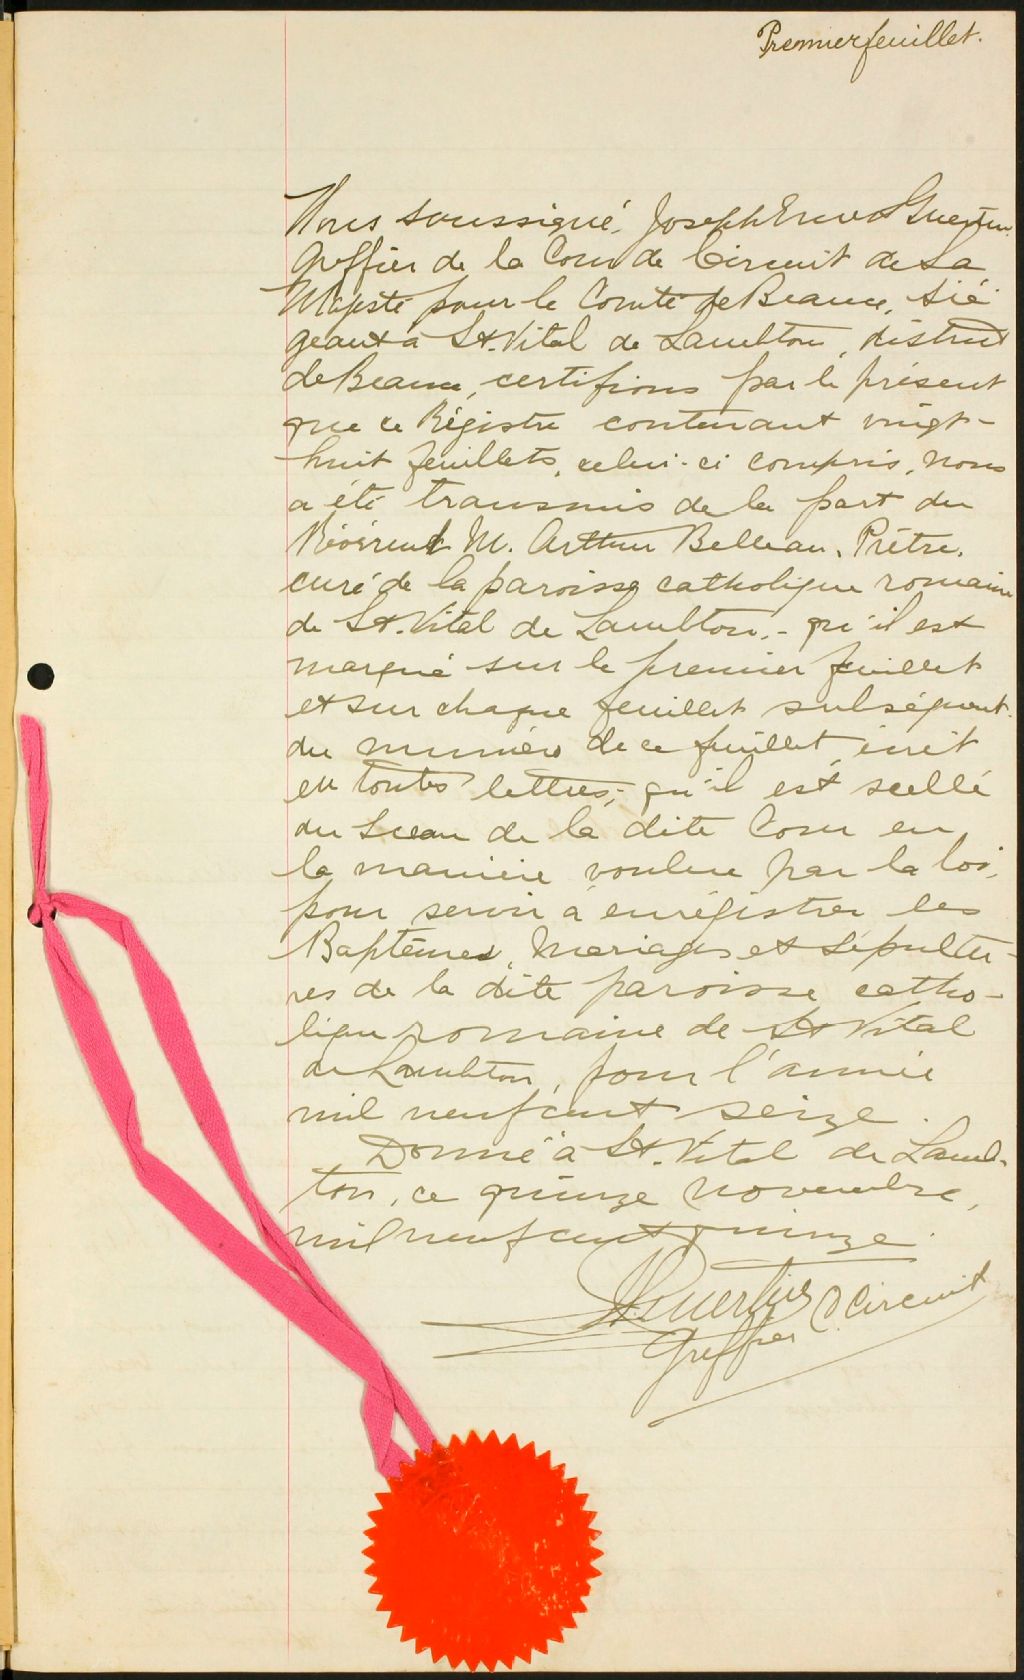 Premier feuillet.
Nous, soussigné, Joseph Guertin
Greffier de la Cour de Circuit de Sa
Majesté pour le Comté de Beauce, Sié-
geant à St. Vital de Lambton, district
de Beauce, certifions par le présent
que ce Régistre contenant vingt-
huit feuillets, celui-ci compris, nous
a été transmis de la part du
Révérend M. Arthur Belleau, Prêtre,
curé de la paroisse catholique romaine
de St. Vital de Lambton, - qu'il est
marqué sur le premier feuillet
et sur chaque feuillet subséquent
du numéro de ce feuillet écrit
en toutes lettres; qu'il est scellé
du Sceau de la dite Cour en
la manière voulue par la loi,
pour servir à enrégistrer les
Baptêmes, Mariages et Sépultu-
res de la dite paroisse catho-
lique romaine de St Vital
de Lambton, pour l'année
mil neuf cent seize.
Donné à St. Vital de Lamb-
ton, ce quinze novembre,
mil neuf cent quinze.
Guertin
Greffier C. Circuit